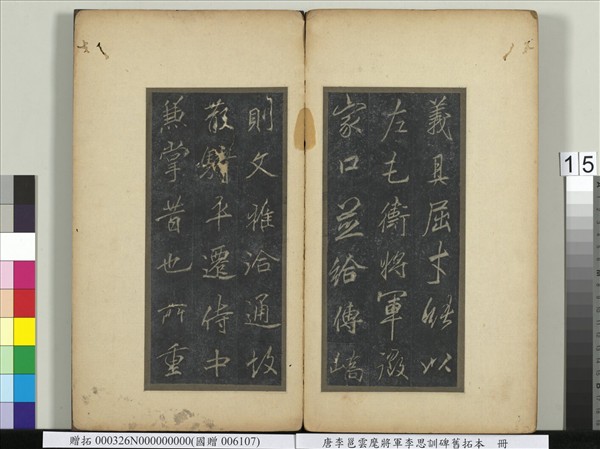 義具屈才以
左屯衛將軍徵
家口並給傳
則文雅洽通故
散騎平遷侍中
兼掌昔也所重
15
贈拓 000326N000000000(國贈 006107)
唐李邕雲麾將軍李思訓碑舊拓本 冊